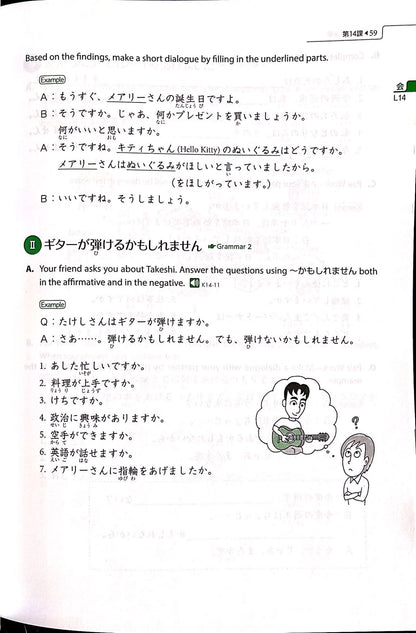 第14課◀59
会
L14
Based on the findings, make a short dialogue by filling in the underlined parts.
Example
A：もうすぐ、メアリーさんの誕生日ですよ。
たんじょうび
B：そうですか。じゃあ、何かプレゼントを買いましょうか。
なに か
何がいいと思いますか。
なに おも
A：そうですね。キティちゃん (Hello Kitty) のぬいぐるみはどうですか。
メアリーさんはぬいぐるみがほしいと言っていましたから。
い
(をほしがっています。)
B：いいですね。そうしましょう。
Ⅱ ギターが弾けるかもしれません ☛Grammar 2
ひ
A. Your friend asks you about Takeshi. Answer the questions using 〜かもしれません both
in the affirmative and in the negative. K14-11
Example
Q：たけしさんはギターが弾けますか。
ひ
A：さあ……。弾けるかもしれません。でも、弾けないかもしれません。
ひ ひ
1. あした忙しいですか。
いそが
2. 料理が上手ですか。
りょうり じょうず
3. けちですか。
4. 政治に興味がありますか。
せいじ きょうみ
5. 空手ができますか。
からて
6. 英語が話せますか。
えいご はな
7. メアリーさんに指輪をあげましたか。
ゆびわ
?